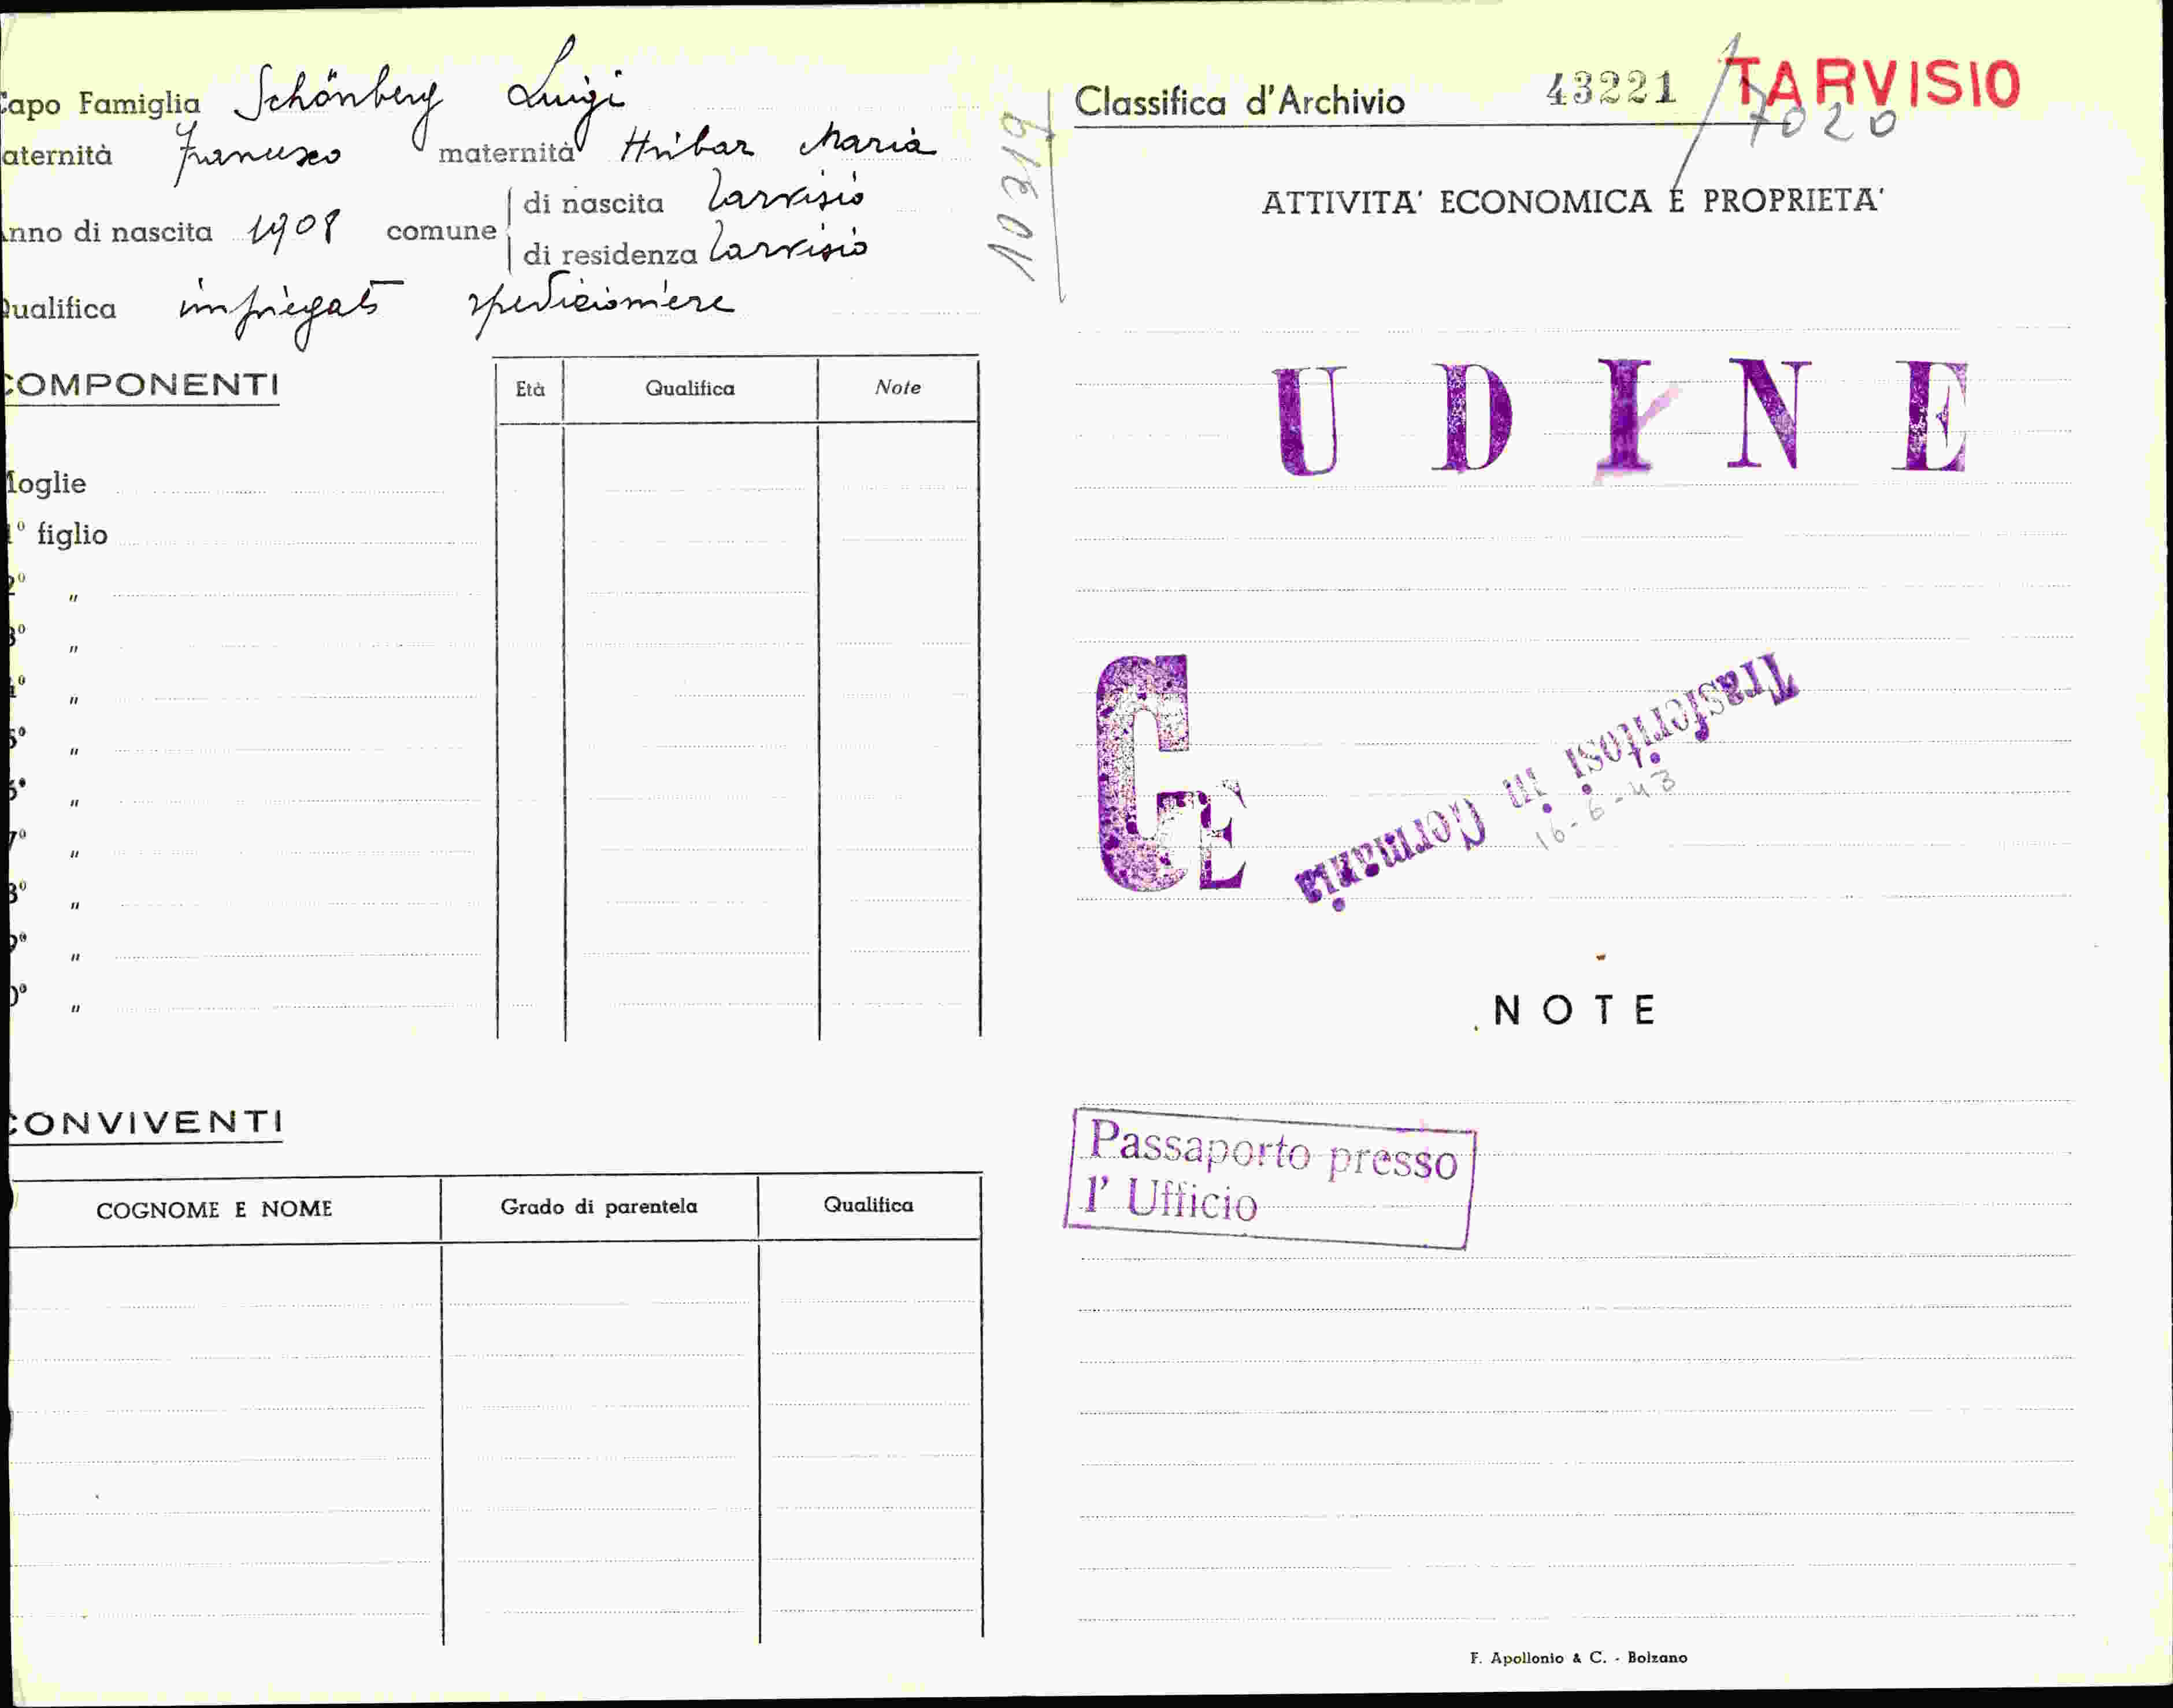 Capo Famiglia Schönberg Luigi
aternità Francesco maternità Hribar Maria
nno di nascita 1908 comune di nascita Tarvisio
di residenza Tarvisio
Qualifica impiegato spedicioniere
COMPONENTI
Età Qualifica Note
Moglie
1° figlio
2° "
3° "
4° "
5° "
6° "
7° "
8° "
9° "
0° "
CONVIVENTI
COGNOME E NOME Grado di parentela Qualifica
10319
Classifica d'Archivio 43221 / TARVISIO
7020
ATTIVITA' ECONOMICA E PROPRIETA'
UDINE
Trasferitosi in Germania
16-6-43
NOTE
Passaporto presso
l' Ufficio
F. Apollonio & C. - Bolzano